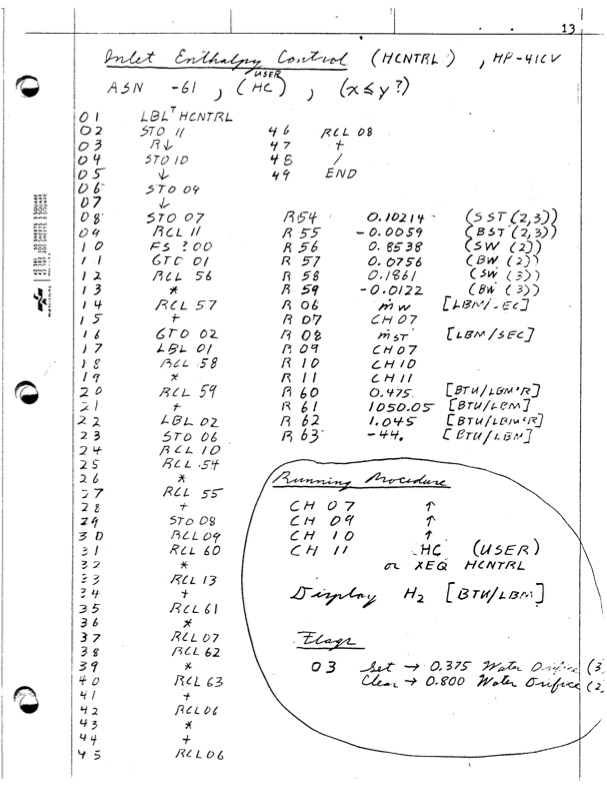 13
Inlet Enthalpy Control (HCNTRL), HP-41CV
USER
ASN -61, (HC), (x≤y?)
01 LBLᵀHCNTRL
02 STO 11 46 RCL 08
03 R↓ 47 +
04 STO 10 48 /
05 ↓ 49 END
06 STO 09
07 ↓
08 STO 07 R54 0.10214 (SST(2,3))
09 RCL 11 R 55 -0.0059 (BST(2,3))
10 FS ?00 R 56 0.8538 (SW (2))
11 GTO 01 R 57 0.0756 (BW (2))
12 RCL 56 R 58 0.1861 (SW (3))
13 * R 59 -0.0122 (BW (3))
14 RCL 57 R 06 ṁw [LBM/SEC]
15 + R 07 CH07
16 GTO 02 R 08 ṁST [LBM/SEC]
17 LBL 01 R 09 CH07
18 RCL 58 R 10 CH10
19 * R 11 CH11
20 RCL 59 R 60 0.475 [BTU/LBM°R]
21 + R 61 1050.05 [BTU/LBM]
22 LBL 02 R 62 1.045 [BTU/LBM°R]
23 STO 06 R 63 -44. [BTU/LBM]
24 RCL 10
25 RCL 54
26 *
27 RCL 55
28 +
29 STO 08
30 RCL 09
31 RCL 60
32 *
33 RCL 13
34 +
35 RCL 61
36 *
37 RCL 07
38 RCL 62
39 *
40 RCL 63
41 +
42 RCL 06
43 *
44 +
45 RCL 06
Running Procedure
CH 07 ↑
CH 09 ↑
CH 10 ↑
CH 11 HC (USER)
or XEQ HCNTRL
Display H₂ [BTU/LBM]
Flags
03 Set → 0.375 Water Orifice (3)
Clear → 0.800 Water Orifice (2)